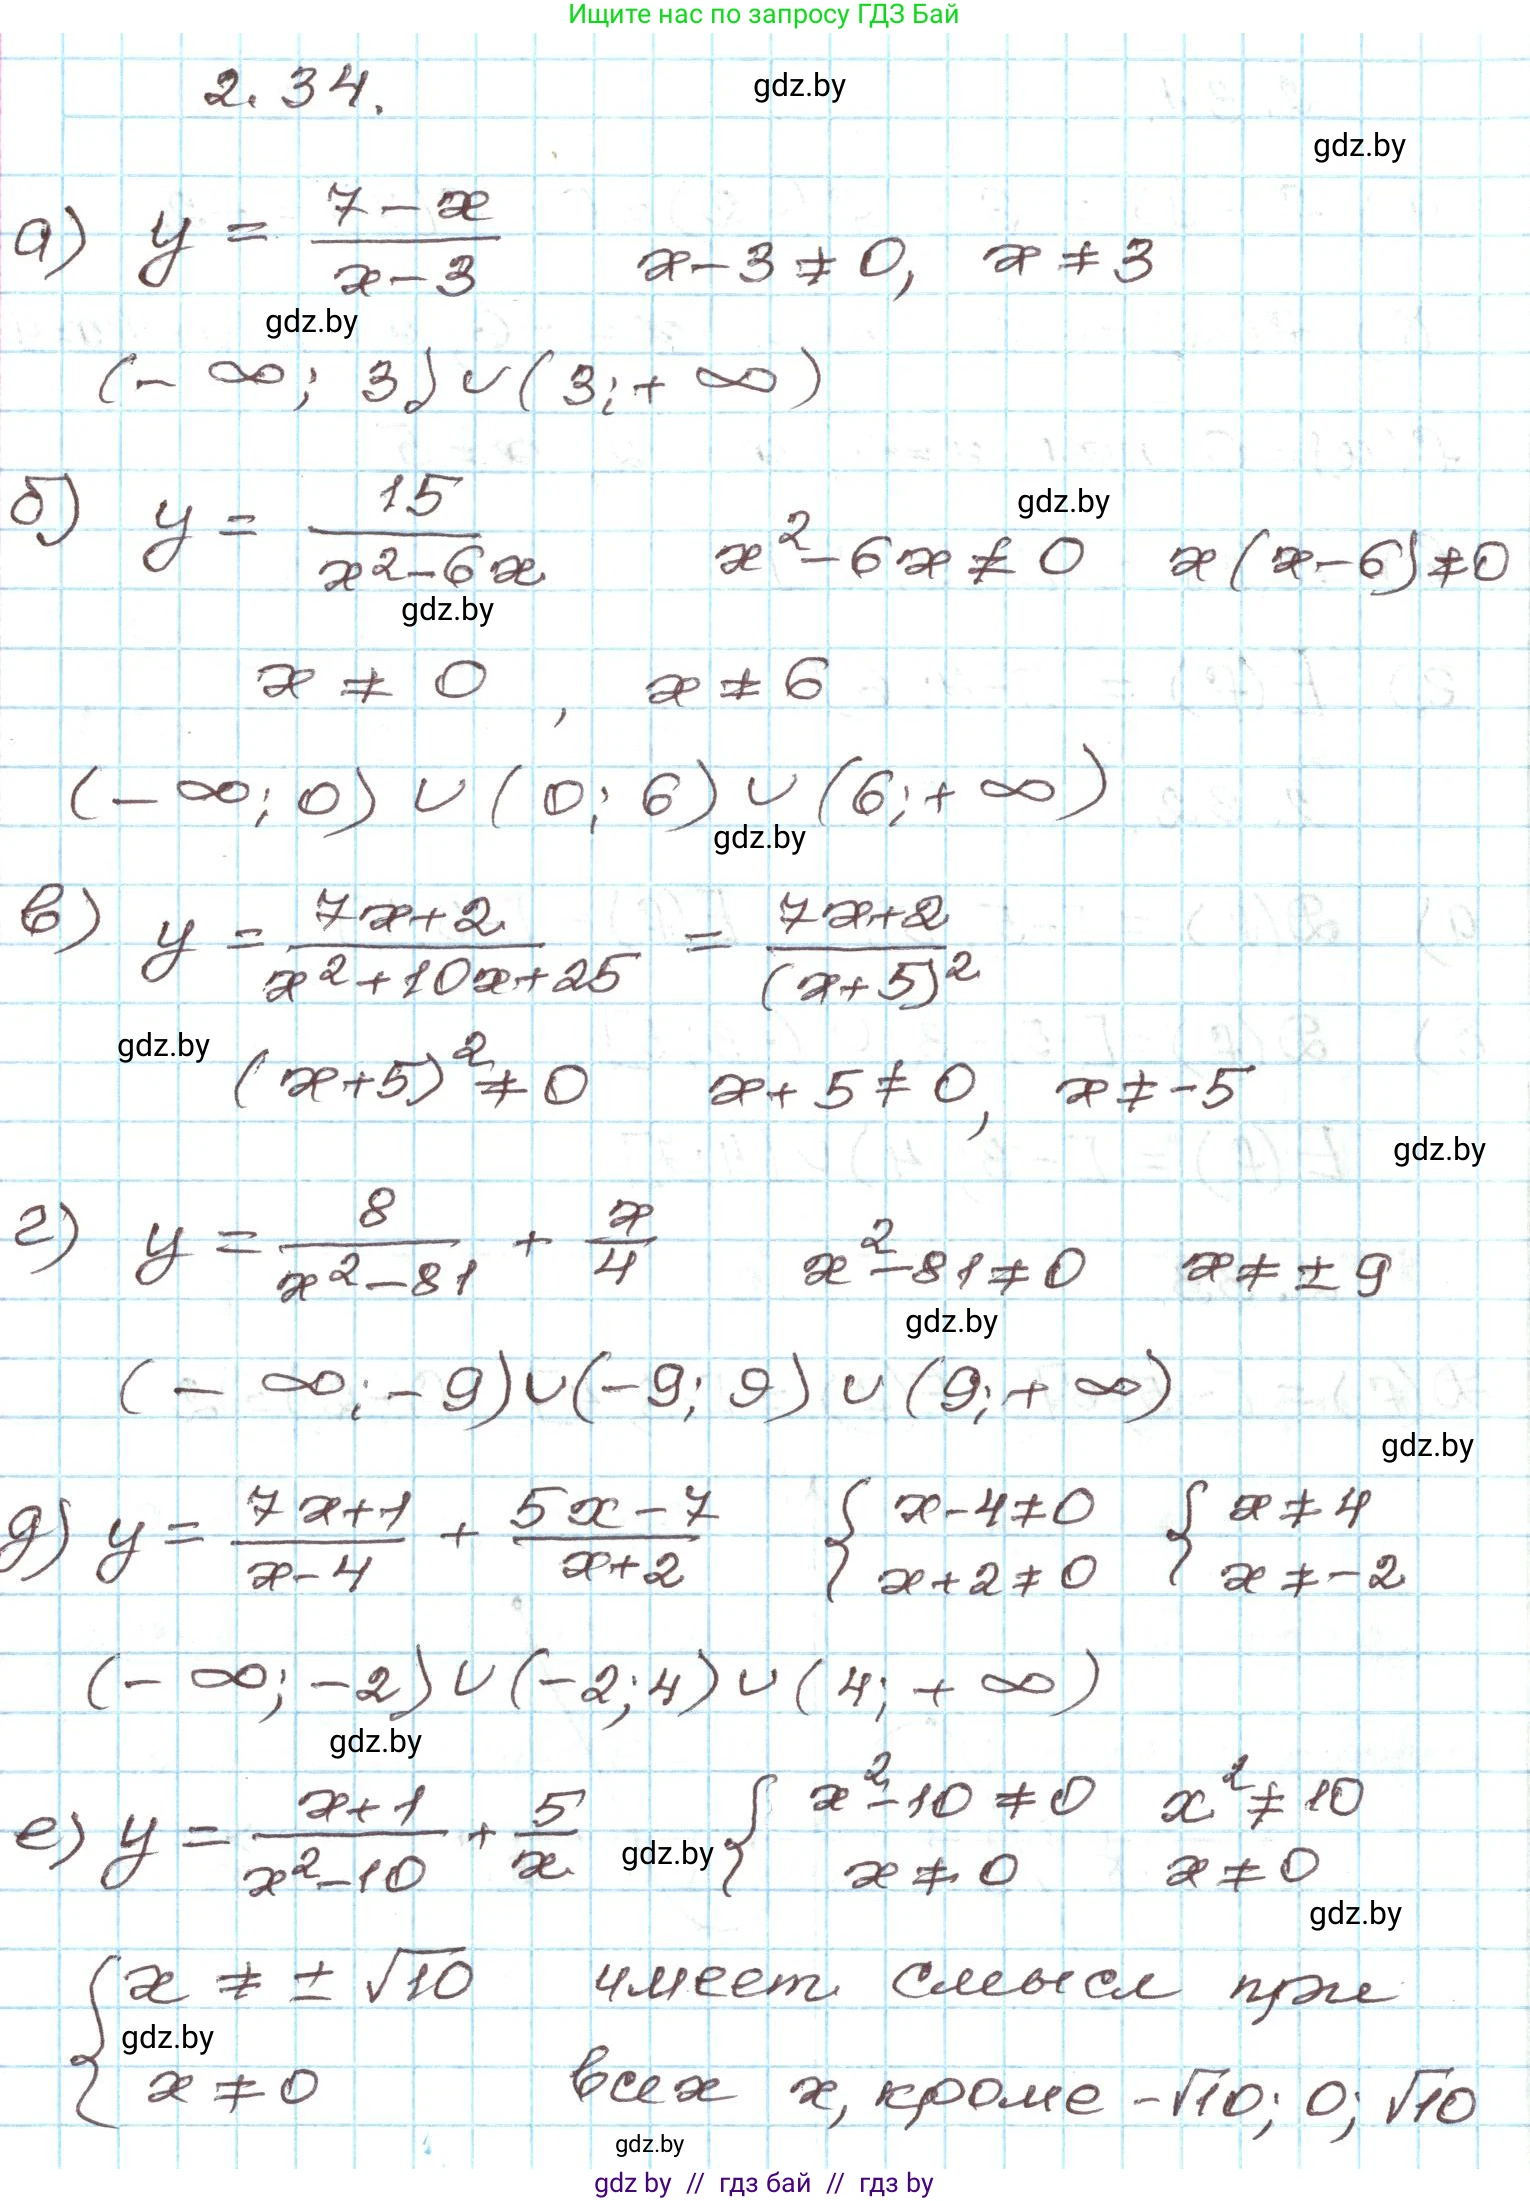 Ищите нас по запросу ГДЗ Бай
2.34.
gdz.by
gdz.by
а) y = (7-x)/(x-3)   x-3≠0, x≠3
gdz.by
(-∞; 3)∪(3;+∞)
б) y = 15/(x²-6x)   x²-6x≠0   x(x-6)≠0
gdz.by
gdz.by
x≠0, x≠6
(-∞;0)∪(0;6)∪(6;+∞)
gdz.by
в) y = (7x+2)/(x²+10x+25) = (7x+2)/(x+5)²
gdz.by
(x+5)²≠0   x+5≠0, x≠-5
gdz.by
г) y = 8/(x²-81) + x/4   x²-81≠0   x≠±9
gdz.by
(-∞;-9)∪(-9;9)∪(9;+∞)
gdz.by
д) y = (7x+1)/(x-4) + (5x-7)/(x+2)   { x-4≠0 x+2≠0   { x≠4 x≠-2
(-∞;-2)∪(-2;4)∪(4;+∞)
gdz.by
е) y = (x+1)/(x²-10) + 5/x   { x²-10≠0 x≠0   x²≠10 x≠0
gdz.by
gdz.by
{ x≠±√10   имеет смысл при
gdz.by
x≠0   всех x, кроме -√10; 0; √10
gdz.by
gdz by // гдз бай // гдз by